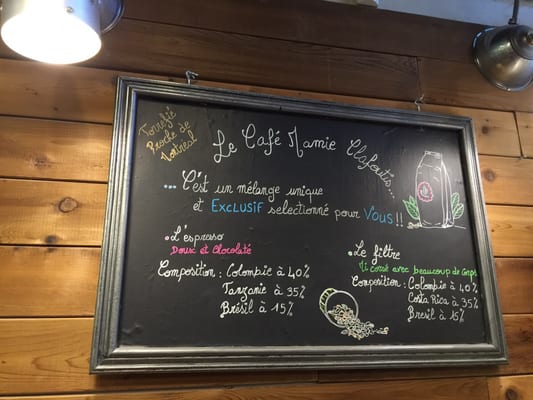 Torréfié
Proche de
Montréal
Le Café Mamie Clafoutis...
... C'est un mélange unique
et EXCLUSIF selectionné pour Vous!!
• L'espresso
Doux et Chocolaté
Composition : Colombie à 40%
Tanzanie à 35%
Brésil à 15%
• Le filtre
Vi corsé avec beaucoup de corps
Composition : Colombie à 40%
Costa Rica à 35%
Bresil à 15%